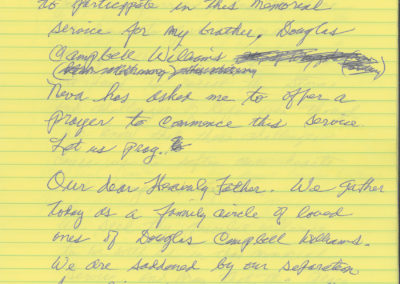 to participate in this memorial
service for my brother, Douglas
Campbell Williams
Neva has asked me to offer a
prayer to commence this service
Let us pray..
Our dear Heavenly Father. We gather
today as a family circle of loved
ones of Douglas Campbell Williams.
We are saddened by our separation